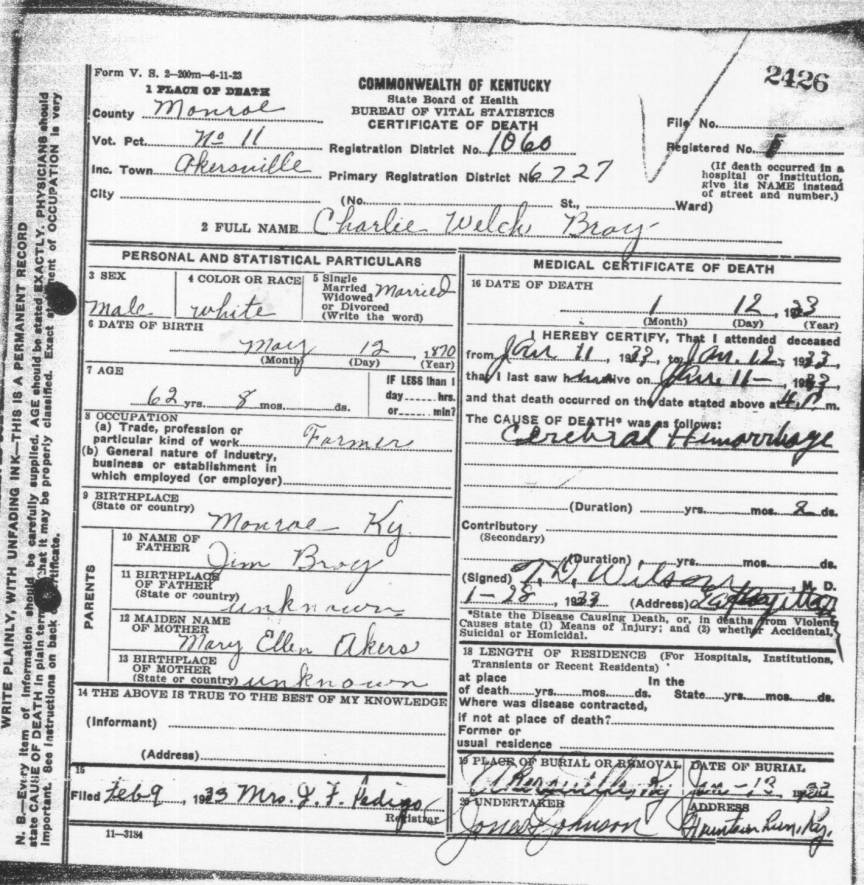 Form V. S. 2—200m—6-11-23
2426
1 PLACE OF DEATH
COMMONWEALTH OF KENTUCKY
State Board of Health
BUREAU OF VITAL STATISTICS
CERTIFICATE OF DEATH
County Monroe
Vot. Pct. No 11
Inc. Town Akersville
City
Registration District No. 1060
Primary Registration District No 6727
(No. St., Ward)
File No.
Registered No.
(If death occurred in a
hospital or institution,
give its NAME instead
of street and number.)
2 FULL NAME Charlie Welch Bray
PERSONAL AND STATISTICAL PARTICULARS
3 SEX
male
4 COLOR OR RACE
white
5 Single
Married
Widowed
or Divorced
(Write the word)
Married
6 DATE OF BIRTH
May 12, 1870
(Month) (Day) (Year)
7 AGE
62 yrs. 8 mos. ds.
IF LESS than 1
day hrs.
or min?
8 OCCUPATION
(a) Trade, profession or
particular kind of work Farmer
(b) General nature of industry,
business or establishment in
which employed (or employer)
9 BIRTHPLACE
(State or country)
Monroe Ky.
PARENTS
10 NAME OF
FATHER
Jim Bray
11 BIRTHPLACE
OF FATHER
(State or country)
unknown
12 MAIDEN NAME
OF MOTHER
Mary Ellen Akers
13 BIRTHPLACE
OF MOTHER
(State or country) unknown
14 THE ABOVE IS TRUE TO THE BEST OF MY KNOWLEDGE
(Informant)
(Address)
15
Filed Feb 9, 1933 Mrs. J. F. Pedigo
Registrar
11—3184
MEDICAL CERTIFICATE OF DEATH
16 DATE OF DEATH
1 12, 1933
(Month) (Day) (Year)
I HEREBY CERTIFY, That I attended deceased
from Jan 11, 1933, to Jan. 12, 1933,
that I last saw him alive on Jan. 11—, 1933
and that death occurred on the date stated above at m.
The CAUSE OF DEATH* was as follows:
Cerebral Hemorrhage
(Duration) yrs. mos. 2 ds.
Contributory
(Secondary)
(Duration) yrs. mos. ds.
(Signed) Wilson, M. D.
1-28, 1933 (Address)
*State the Disease Causing Death, or, in deaths from Violent
Causes state (1) Means of Injury; and (2) whether Accidental,
Suicidal or Homicidal.
18 LENGTH OF RESIDENCE (For Hospitals, Institutions,
Transients or Recent Residents)
at place In the
of death yrs. mos. ds. State yrs. mos. ds.
Where was disease contracted,
if not at place of death?
Former or
usual residence
19 PLACE OF BURIAL OR REMOVAL
Akersville, Ky
DATE OF BURIAL
Jan—13 1933
20 UNDERTAKER
Jones Johnson
ADDRESS
Fountain Run, Ky.
WRITE PLAINLY, WITH UNFADING INK—THIS IS A PERMANENT RECORD
N. B.—Every item of information should be carefully supplied. AGE should be stated EXACTLY. PHYSICIANS should
state CAUSE OF DEATH in plain terms that it may be properly classified. Exact statement of OCCUPATION is very
important. See instructions on back of certificate.